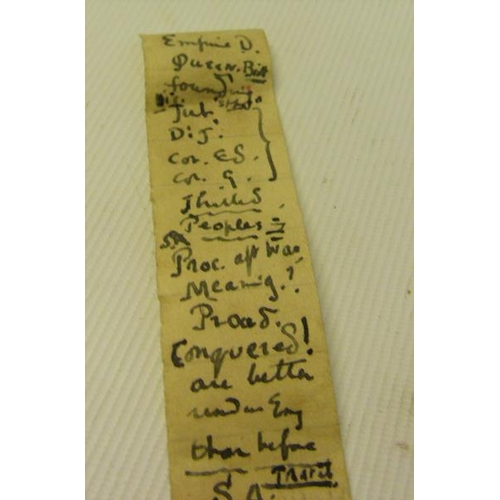 Empire D.
Queen. Birt
founding
Jub.
D. J.
Cor. Ed.
Cor. G.
Thrilled.
Peoples
Proc. aft War,
Meaning?
Proad.
Conquered!
are better
under Eng
than before
S.A.